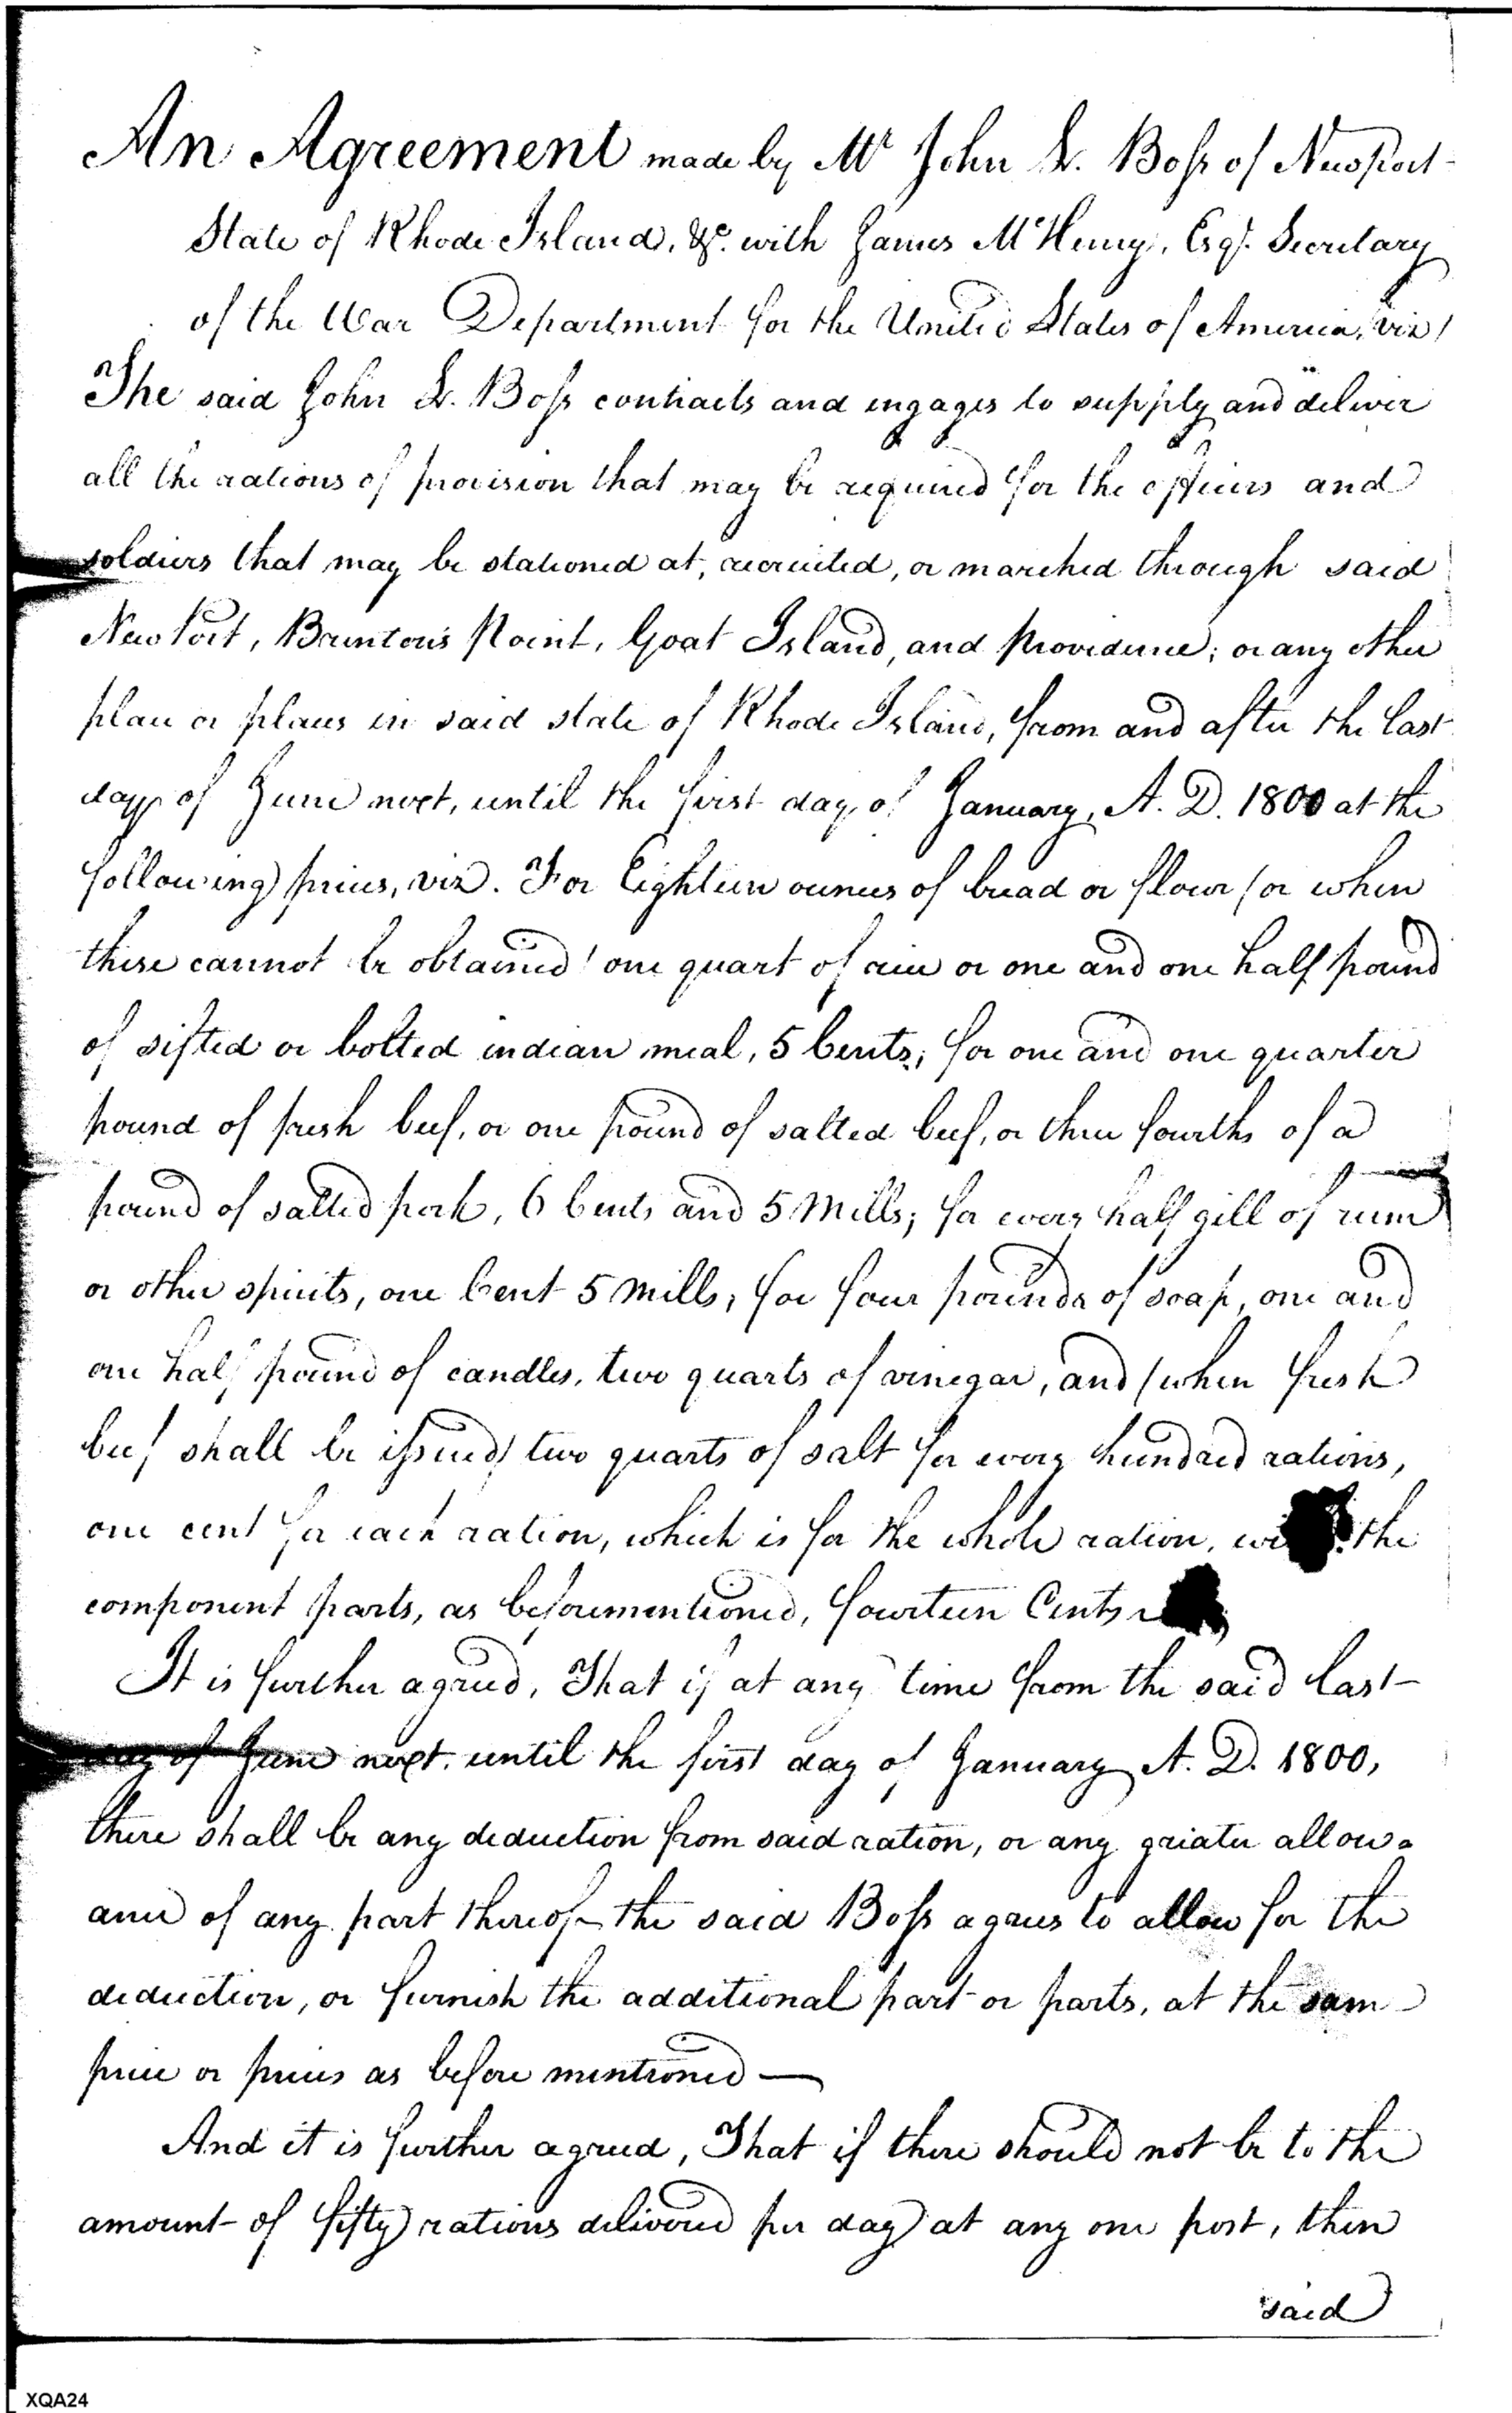 An Agreement made by Mr John L. Boss of Newport
State of Rhode Island, &c. with James McHenry, Esqr. Secretary
of the War Department for the United States of America, viz/
The said John L. Boss contracts and engages to supply and deliver
all the rations of provision that may be required for the officers and
soldiers that may be stationed at, recruited, or marched through said
Newport, Brenton's Point, Goat Island, and Providence; or any other
place or places in said state of Rhode Island, from and after the last
day of June next, until the first day of January, A. D. 1800 at the
following prices, viz. For Eighteen ounces of bread or flour (or when
these cannot be obtained) one quart of rice or one and one half pound
of sifted or bolted indian meal, 5 Cents; for one and one quarter
pound of fresh beef, or one pound of salted beef, or three fourths of a
pound of salted pork, 6 Cents and 5 Mills; for every half gill of rum
or other spirits, one Cent 5 Mills; for four pounds of soap, one and
one half pound of candles, two quarts of vinegar, and (when fresh
beef shall be issued) two quarts of salt for every hundred rations,
one cent for each ration, which is for the whole ration, with the
component parts, as beforementioned, fourteen Cents
It is further agreed, That if at any time from the said last
day of June next, until the first day of January A. D. 1800,
there shall be any deduction from said ration, or any greater allow=
ance of any part thereof the said Boss agrees to allow for the
deduction, or furnish the additional part or parts, at the same
price or prices as before mentioned —
And it is further agreed, That if there should not be to the
amount of fifty rations delivered per day at any one post, then
said
XQA24